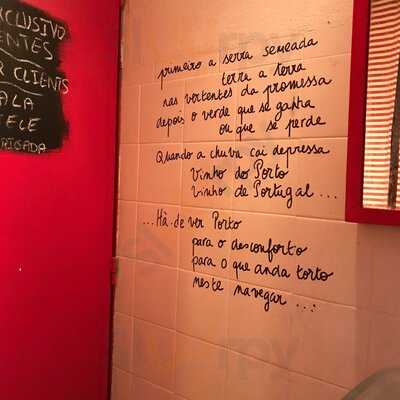 XCLUSIVO
ENTES
R CLIENTS
ALA
TELE
RIGADA
primeiro a serra semeada
terra a terra
nas vertentes da promessa
depois o verde que se ganha
ou que se perde
Quando a chuva cai depressa
Vinho do Porto
vinho de Portugal ...
... Há-de ver Porto
para o desconforto
para o que anda torto
neste navegar ...